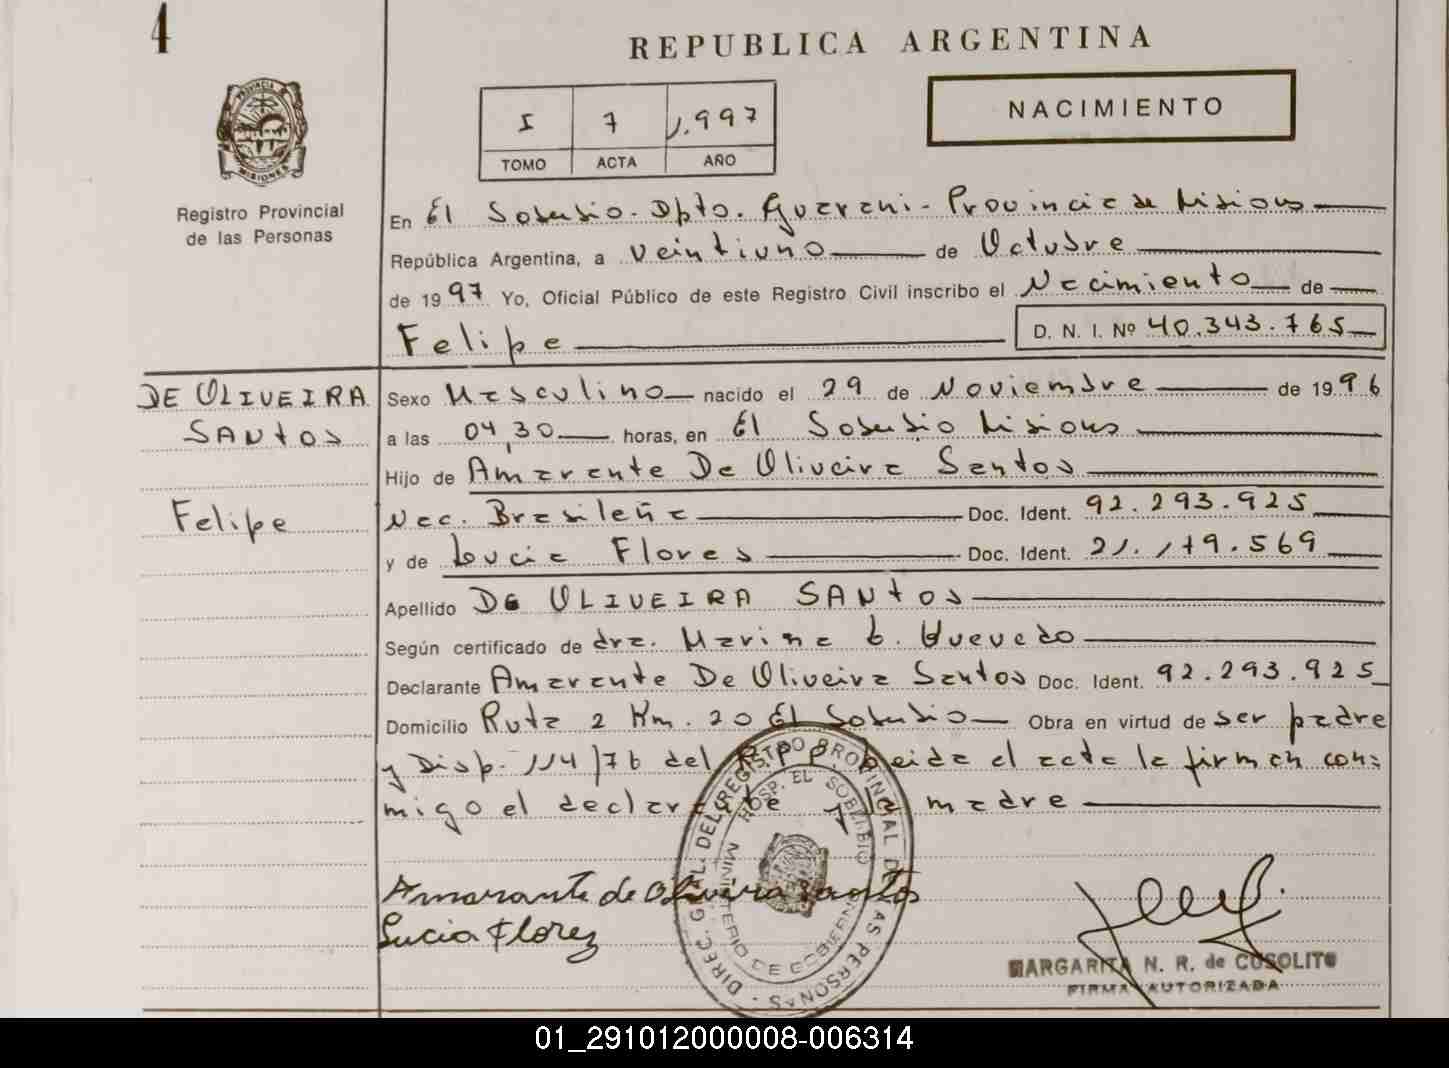 4
REPUBLICA ARGENTINA
I 7 1.997
TOMO ACTA AÑO
NACIMIENTO
PROVINCIA
MISIONES
Registro Provincial
de las Personas
En El Soberbio - Dpto. Guarani - Provincia de Misiones
República Argentina, a veintiuno de Octubre
de 1997 Yo, Oficial Público de este Registro Civil inscribo el Nacimiento de
Felipe D. N. I. Nº 40.343.765
DE OLIVEIRA
SANtOS
Felipe
Sexo Masculino nacido el 29 de Noviembre de 1996
a las 04,30 horas, en El Soberbio Misiones
Hijo de Amarante De Oliveira Santos
Nac. Brasileña Doc. Ident. 92.293.925
y de Lucia Flores Doc. Ident. 21.179.569
Apellido DE OLIVEIRA SANtOS
Según certificado de dra. Marina
Declarante Amarante De Oliveira Santos Doc. Ident. 92.293.925
Domicilio Ruta 2 Km. 20 El Soberbio Obra en virtud de ser padre
y Disp. 114/76 del RPP Leida el acta la firman con=
migo el declarante y la madre
Amarante de Oliveira Santos
Lucia Florez
DIREC. GRAL. DEL REGISTRO PROVINCIAL DE LAS PERSONAS
HOSP. EL SOBERBIO
MINISTERIO DE GOBIERNO
MARGARITA N. R. de CUSOLITO
FIRMA AUTORIZADA
01_291012000008-006314